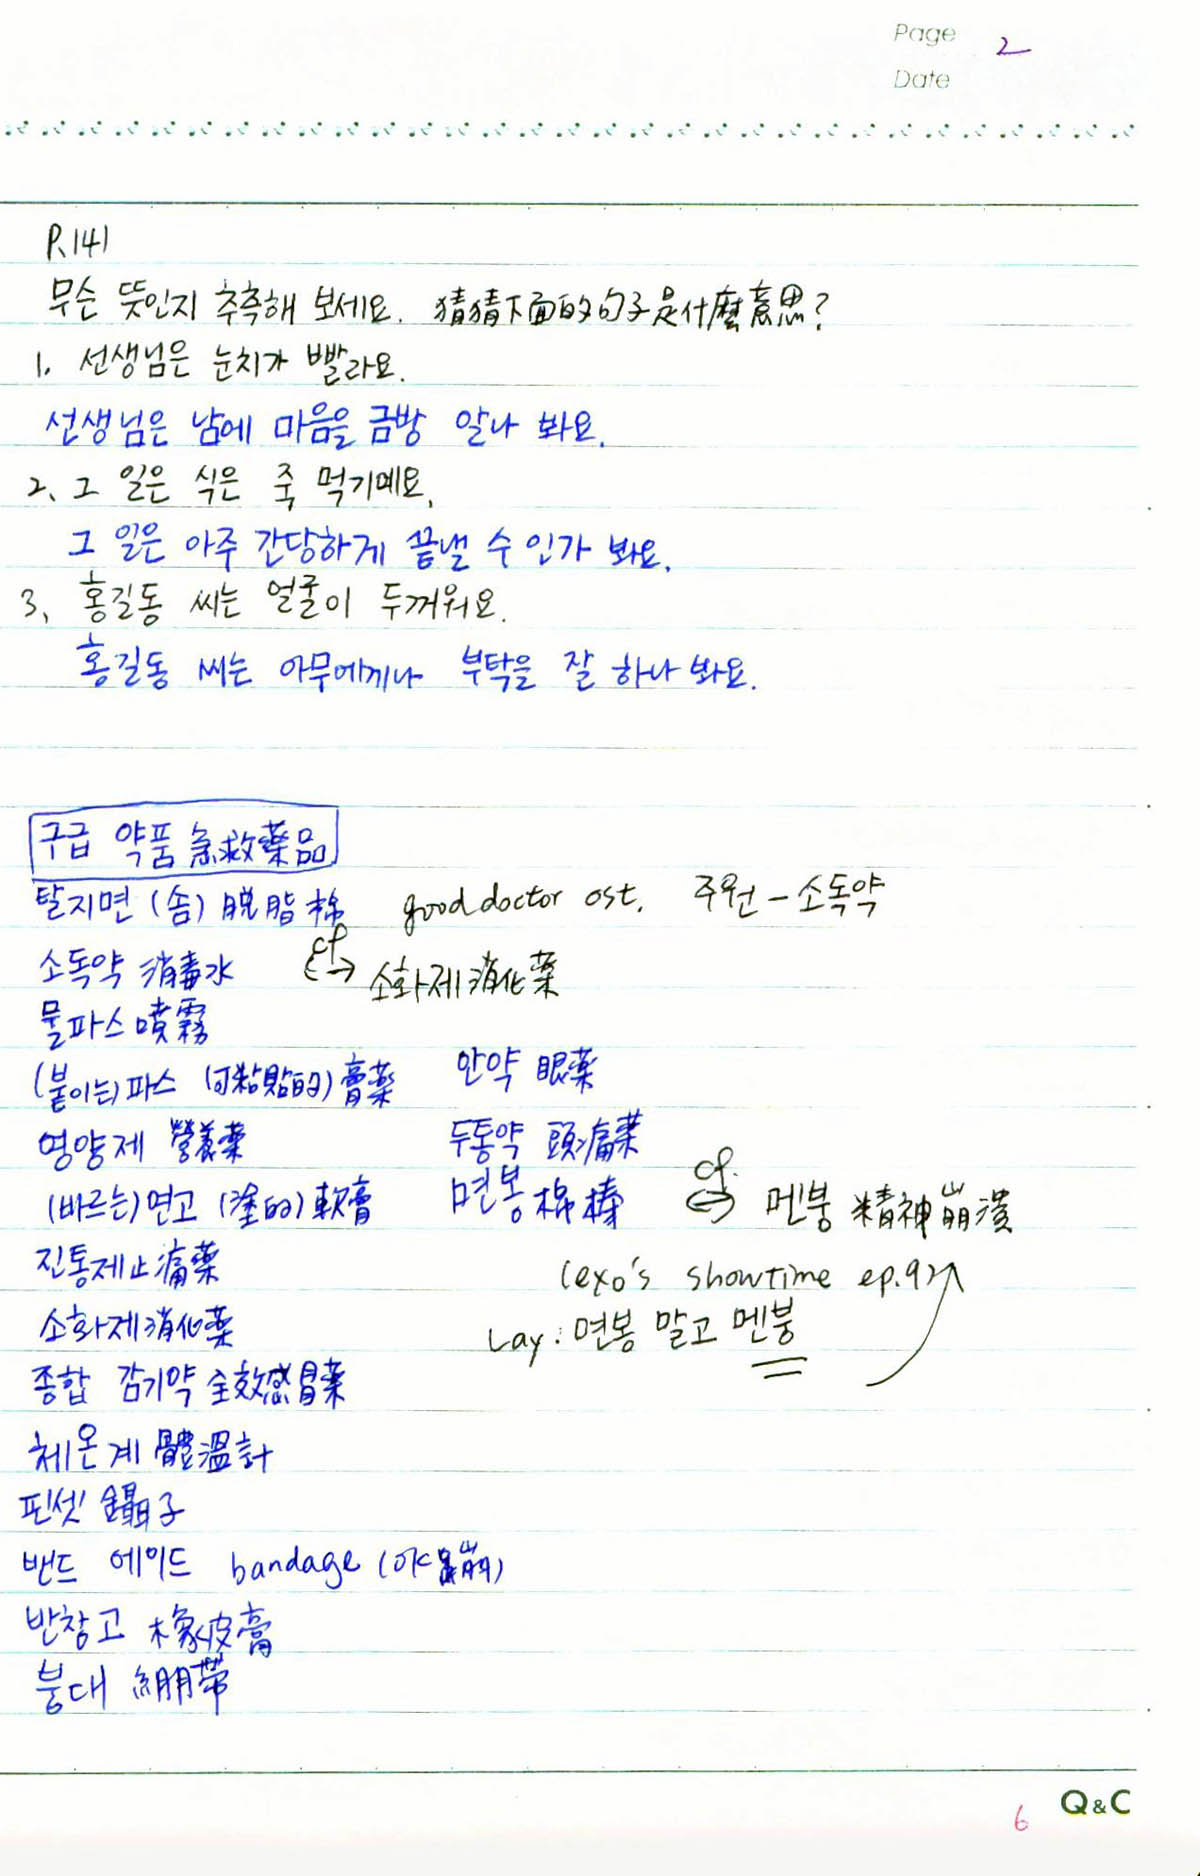 Page 2
Date
P.141
무슨 뜻인지 추측해 보세요. 猜猜下面的句子是什麼意思?
1. 선생님은 눈치가 빨라요.
선생님은 남에 마음을 금방 알나 봐요.
2. 그 일은 식은 죽 먹기예요.
그 일은 아주 간당하게 끝낼 수 인가 봐요.
3. 홍길동 씨는 얼굴이 두꺼워요.
홍길동 씨는 아무에게나 부탁을 잘 하나 봐요.
구급 약품 急救藥品
탈지면 (솜) 脫脂棉 good doctor ost. 주원 - 소독약
소독약 消毒水 cf. 소화제 消化藥
물파스 噴霧
(붙이는) 파스 (可粘貼的) 膏藥 안약 眼藥
영양제 營養藥 두통약 頭痛藥
(바르는) 연고 (塗的) 軟膏 면봉 棉棒 cf. 멘붕 精神崩潰
진통제 止痛藥 (exo's showtime ep.92)
소화제 消化藥 Lay : 면봉 말고 멘붕
종합 감기약 全效感冒藥
체온계 體溫計
핀셋 鑷子
밴드 에이드 bandage (OK繃)
반창고 橡皮膏
붕대 繃帶
6 Q&C